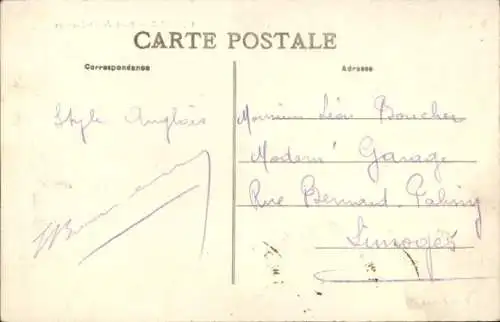 CARTE POSTALE
Correspondance
Adresse
Style Anglais
Monsieur Léon Boucher
Modern' Garage
Rue Bernard Palissy
Limoges